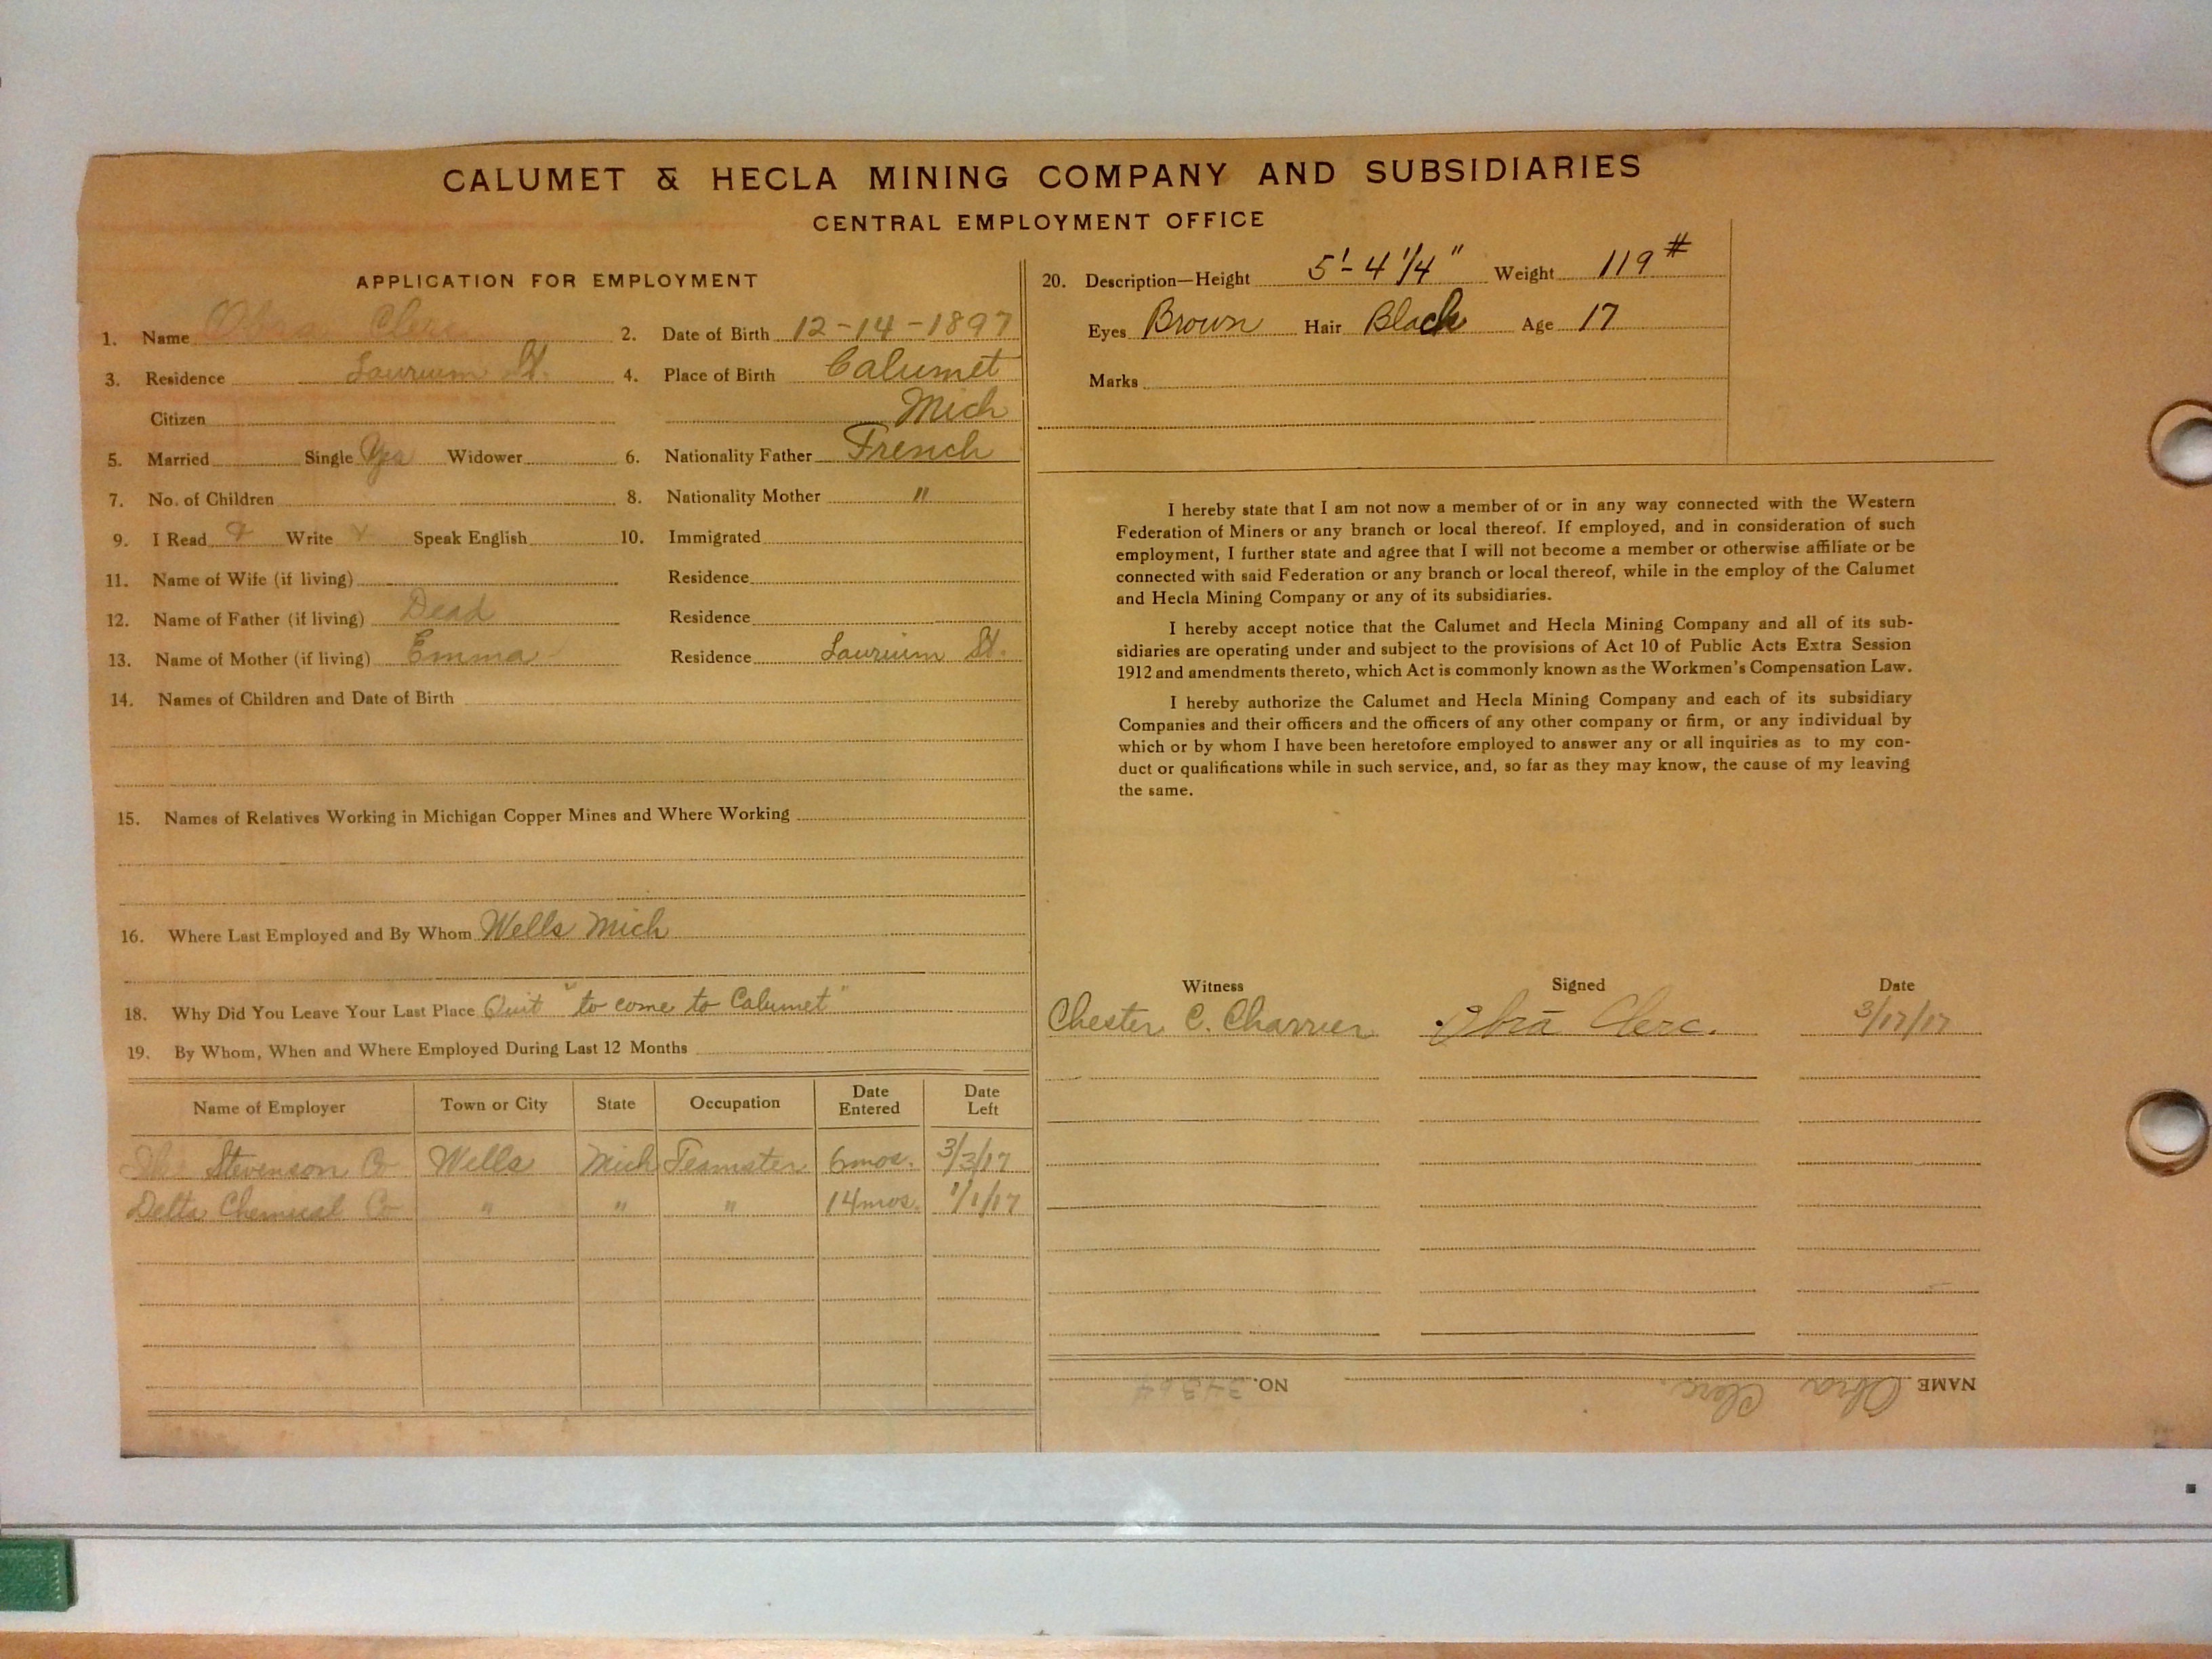 CALUMET & HECLA MINING COMPANY AND SUBSIDIARIES
CENTRAL EMPLOYMENT OFFICE
APPLICATION FOR EMPLOYMENT
1. Name Obra Clerc 2. Date of Birth 12-14-1897
3. Residence Laurium St. 4. Place of Birth Calumet
Citizen Mich
5. Married Single Yes Widower 6. Nationality Father French
7. No. of Children 8. Nationality Mother "
9. I Read Write Speak English 10. Immigrated
11. Name of Wife (if living) Residence
12. Name of Father (if living) Dead Residence
13. Name of Mother (if living) Emma Residence Laurium St.
14. Names of Children and Date of Birth
15. Names of Relatives Working in Michigan Copper Mines and Where Working
16. Where Last Employed and By Whom Wells Mich
18. Why Did You Leave Your Last Place Quit "to come to Calumet"
19. By Whom, When and Where Employed During Last 12 Months
Name of Employer Town or City State Occupation Date Entered Date Left
The Stevenson Co Wells Mich Teamster 6mos. 3/3/17
Delta Chemical Co " " " 14mos. 1/1/17
20. Description—Height 5'-4 1/4" Weight 119#
Eyes Brown Hair Black Age 17
Marks
I hereby state that I am not now a member of or in any way connected with the Western
Federation of Miners or any branch or local thereof. If employed, and in consideration of such
employment, I further state and agree that I will not become a member or otherwise affiliate or be
connected with said Federation or any branch or local thereof, while in the employ of the Calumet
and Hecla Mining Company or any of its subsidiaries.
I hereby accept notice that the Calumet and Hecla Mining Company and all of its sub-
sidiaries are operating under and subject to the provisions of Act 10 of Public Acts Extra Session
1912 and amendments thereto, which Act is commonly known as the Workmen's Compensation Law.
I hereby authorize the Calumet and Hecla Mining Company and each of its subsidiary
Companies and their officers and the officers of any other company or firm, or any individual by
which or by whom I have been heretofore employed to answer any or all inquiries as to my con-
duct or qualifications while in such service, and, so far as they may know, the cause of my leaving
the same.
Witness Signed Date
Chester C. Charrier Obra Clerc. 3/17/17
NAME Obra Clerc. NO.